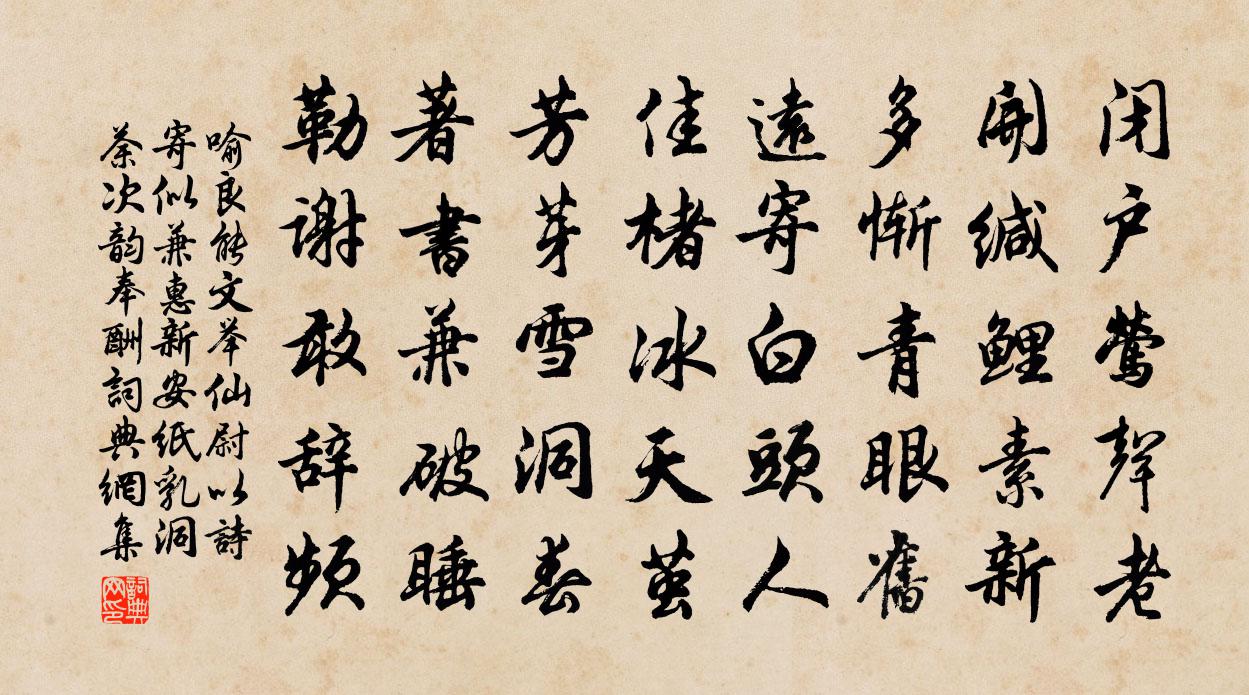 闭户莺聲老
開缄鲤素新
多惭青眼舊
遠寄白頭人
佳楮冰天茧
芳芽雪洞春
著書兼破睡
勒谢敢辞频
喻良能文举仙尉以詩
寄似兼惠新安纸乳洞
茶次韵奉酬詞典網集
詞典
网印